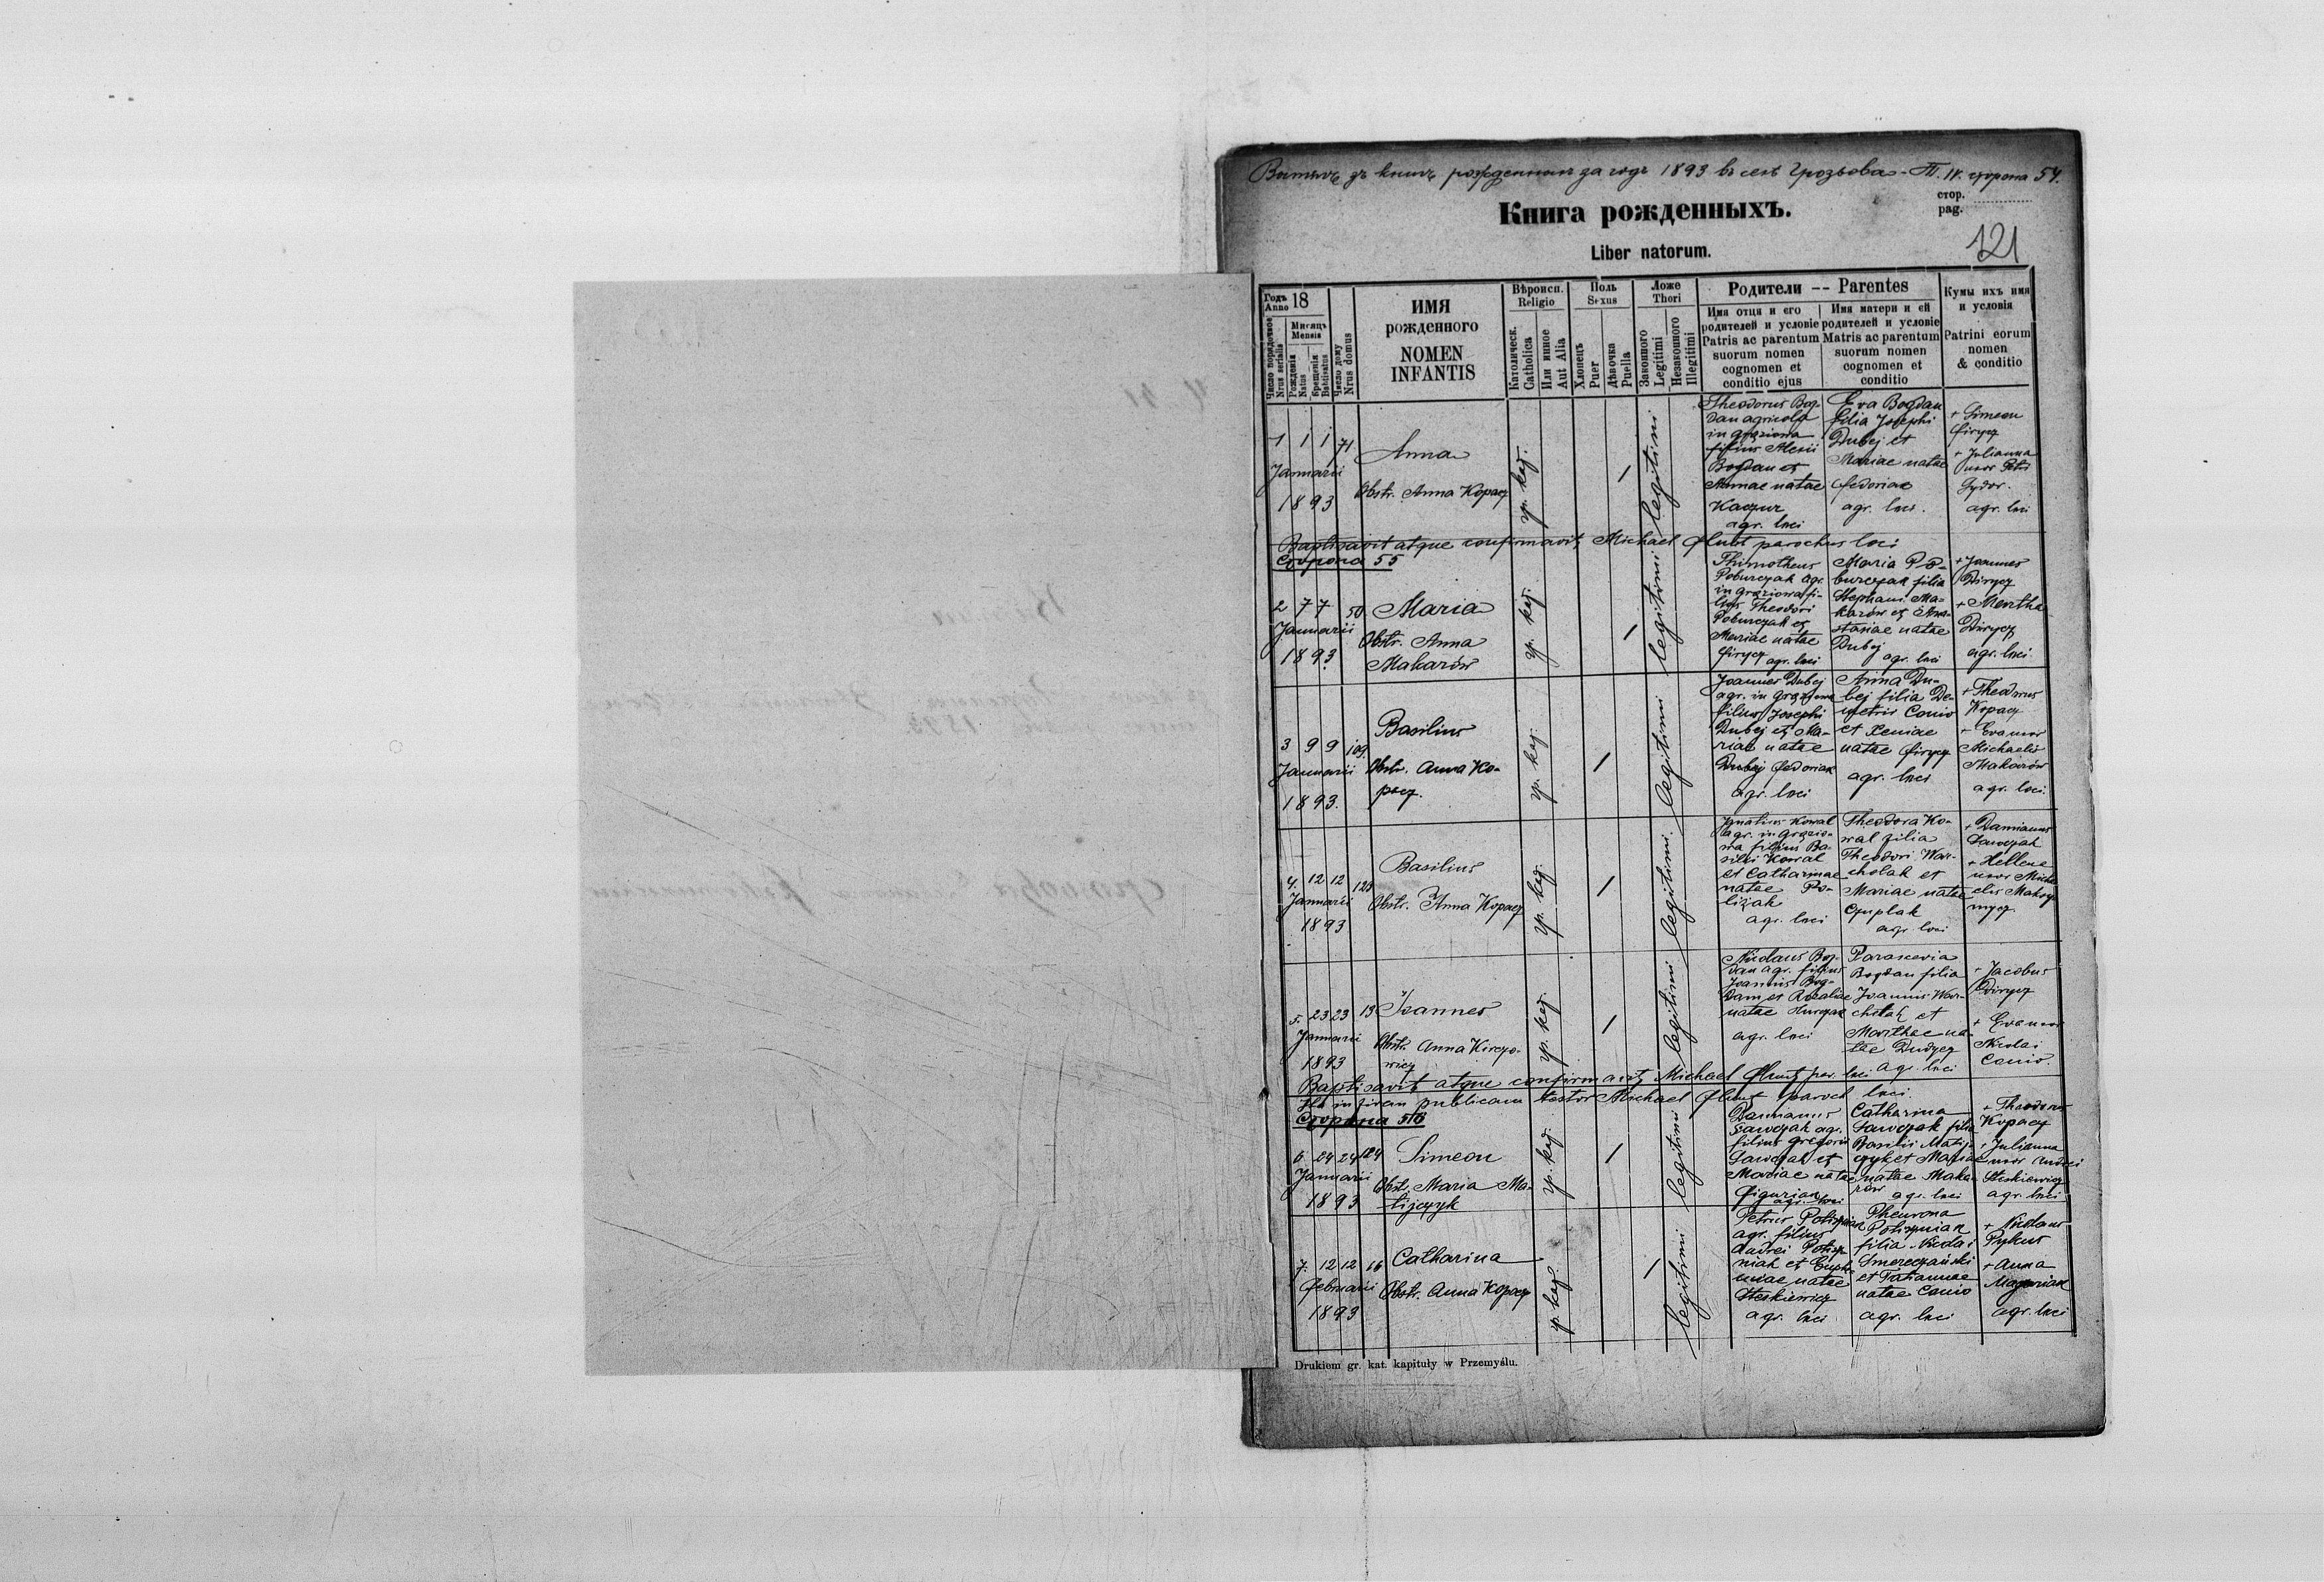 Вытягъ зъ книгъ рожденныхъ за годъ 1893 въ селѣ Грозьова - Т. IV. сторона 54.
Книга рожденныхъ.
стор.
pag.
Liber natorum.
121
Годъ Anno 18
Число порядковое
Nrus serialis
Мисяць
Mensis
Рожденія
Natus
Крещенія
Babtisatus
Число дому
Nrus domus
ИМЯ
рожденного
NOMEN
INFANTIS
Вѣроисп.
Religio
Католическ.
Catholica
Или инное
Aut Alia
Поль
Sexus
Хлопець
Puer
Дѣвочка
Puella
Ложе
Thori
Законного
Legitimi
Незаконного
Illegitimi
Родители -- Parentes
Имя отця и его
родителей и условіе
Patris ac parentum
suorum nomen
cognomen et
conditio ejus
Имя матери и ей
родителей и условіе
Matris ac parentum
suorum nomen
cognomen et
conditio
Кумы ихъ имя
и условія
Patrini eorum
nomen
& conditio
1 1 1 71
Januarii
1893
Anna
Obstr. Anna Kopacz
гр. кат.
/
legitimi
Theodorus Bog-
dan agricola
in Groziowa
filius Alexii
Bogdan et
Annae natae
Kaczur
agr. loci
Eva Bogdan
filia Josephi
Dubej et
Mariae natae
Fedoriak
agr. loci.
+ Simeon
Firycz
+ Julianna
uxor Petri
Fydor.
agr. loci
Baptisavit atque confirmavit Michael Flunt parochus loci
Сторона 55
2 7 7 50
Januarii
1893
Maria
Obstr. Anna
Makarów
гр. кат.
/
legitimi
Thimotheus
Poburczak agr.
in Groziowa fi-
lius Theodori
Poburczak et
Mariae natae
Firycz agr. loci
Maria Po-
burczak filia
Stephani Ma-
karów et Ana-
stasiae natae
Dubej
agr. loci
+ Joannes
Dirycz
+ Martha
Dirycz
agr. loci.
3 9 9 109.
Januarii
1893.
Basilius
Obstr. Anna Ko-
pacz.
гр. кат.
/
legitimi
Joannes Dubej
agr. in Groziowa
filius Josephi
Dubej et Ma-
riae natae
Dubej Fedoriak
agr. loci
Anna Du-
bej filia De-
metrii Canio
et Xeniae
natae Firycz
agr. loci
+ Theodorus
Kopacz
+ Eva uxor
Michaelis
Makarów
agr. loci.
4. 12 12 123
Januarii
1893
Basilius
Obstr. Anna Kopacz
гр. кат.
/
legitimi.
Ignatius Kowal
agr. in Grozio-
wa filius Ba-
silii Kowal
et Catharinae
natae Po-
lizak
agr. loci
Theodora Ko-
wal filia
Theodori War-
cholak et
Mariae natae
Czuplak
agr. loci
+ Damianus
Sawczak
+ Hellena
uxor Micha-
elis Maksy-
mycz.
5. 23 23 13
Januarii
1893
Joannes
Obstr. Anna Kirczo-
wicz
гр. кат.
/
legitimi
Nicolaus Bog-
dan agr. filius
Joannis Bog-
dam et Rosaliae
natae Hurczak
agr. loci
Parascevia
Bogdan filia
Joannis War-
cholak et
Marthae na-
tae Dudycz
agr. loci
+ Jacobus
Dirycz
+ Eva uxor
Nicolai
Canio.
Baptisavit atque confirmavit Michael Flunt par. loci
publicam testor Michael Flunt paroch loci.
Сторона 56
6. 24 24 124
Januarii
1893
Simeon
Obst. Maria Ma-
tijczyk
гр. кат.
/
legitimi
Damianus
Sawczak agr.
filius Gregorii
Sawczak et
Mariae natae
Figurian
agr. loci
Catharina
Sawczak filia
Basilii Matij-
czyk et Mariae
natae Maka-
rów
agr. loci
+ Theodorus
Kopacz
+ Julianna
uxor Andrei
Steskiewicz
agr. loci
7. 12 12 16
Februarii
1893
Catharina
Obstr. Anna Kopacz
гр. кат.
/
legitimi
Petrus Potiszniak
agr. filius
Andrei Potisz-
niak et Euphe-
miae natae
Steskiewicz
agr. loci
Pheurona
Potiszniak
filia Nicolai
Smereczański
et Tatiannae
natae Canio
agr. loci
+ Nicolaus
Pykus
+ Anna
Mazuriak
agr. loci
Drukiem gr. kat. kapituły w Przemyślu.